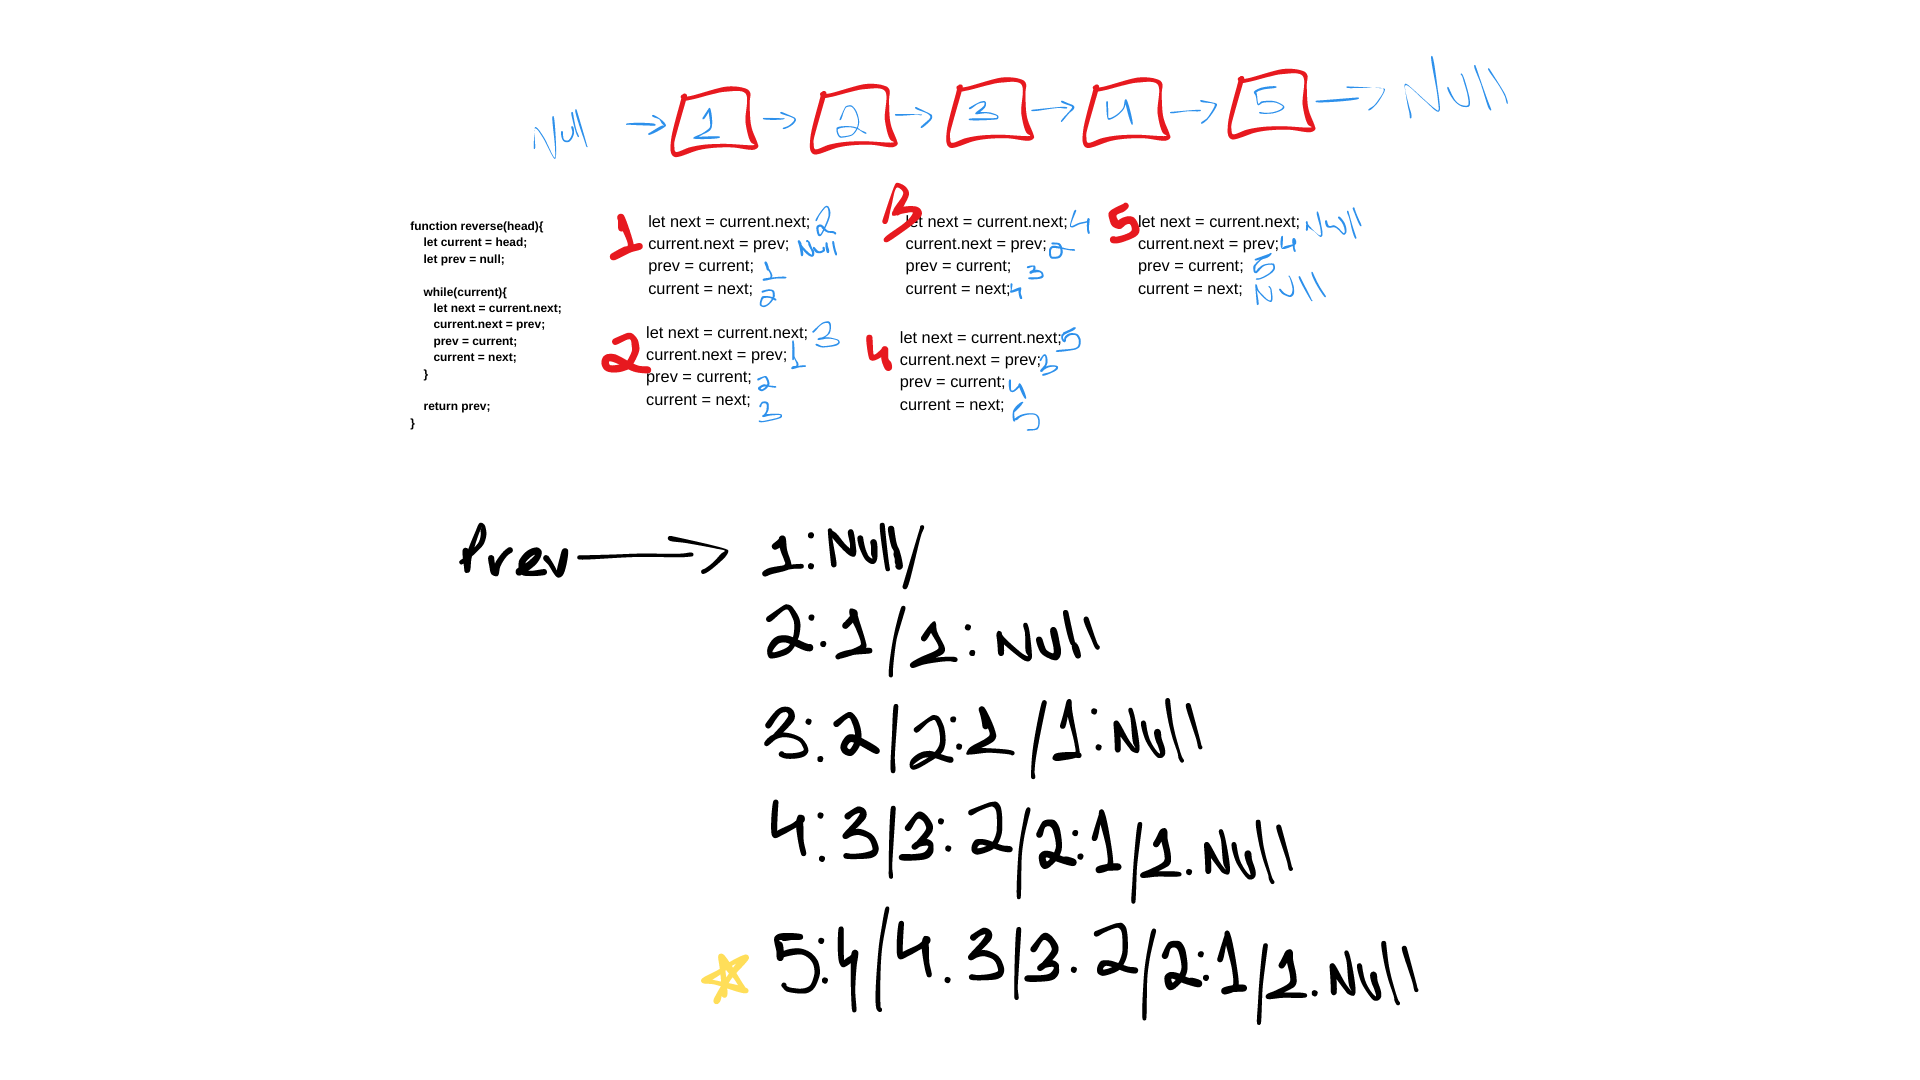 Null → 1 → 2 → 3 → 4 → 5 → Null
function reverse(head){
let current = head;
let prev = null;
while(current){
let next = current.next;
current.next = prev;
prev = current;
current = next;
}
return prev;
}
1 let next = current.next; 2
current.next = prev; Null
prev = current; 1
current = next; 2
2 let next = current.next; 3
current.next = prev; 1
prev = current; 2
current = next; 3
3 let next = current.next; 4
current.next = prev; 2
prev = current; 3
current = next; 4
4 let next = current.next; 5
current.next = prev; 3
prev = current; 4
current = next; 5
5 let next = current.next; Null
current.next = prev; 4
prev = current; 5
current = next; Null
Prev → 1: Null/
2:1/1: Null
3:2/2:1/1:Null
4:3/3:2/2:1/1.Null
5:4/4.3/3.2/2:1/1.Null